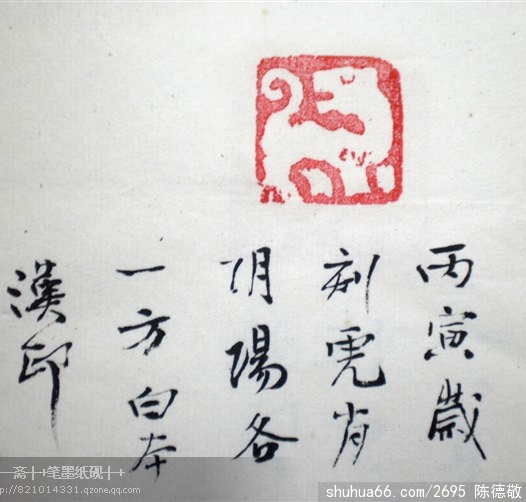 丙寅歲
刻虎肖
阴陽各
一方白本
漢印
一斋┼┼笔墨纸砚┼┼
://821014331.qzone.qq.com
shuhua66.com/2695 陈德敬